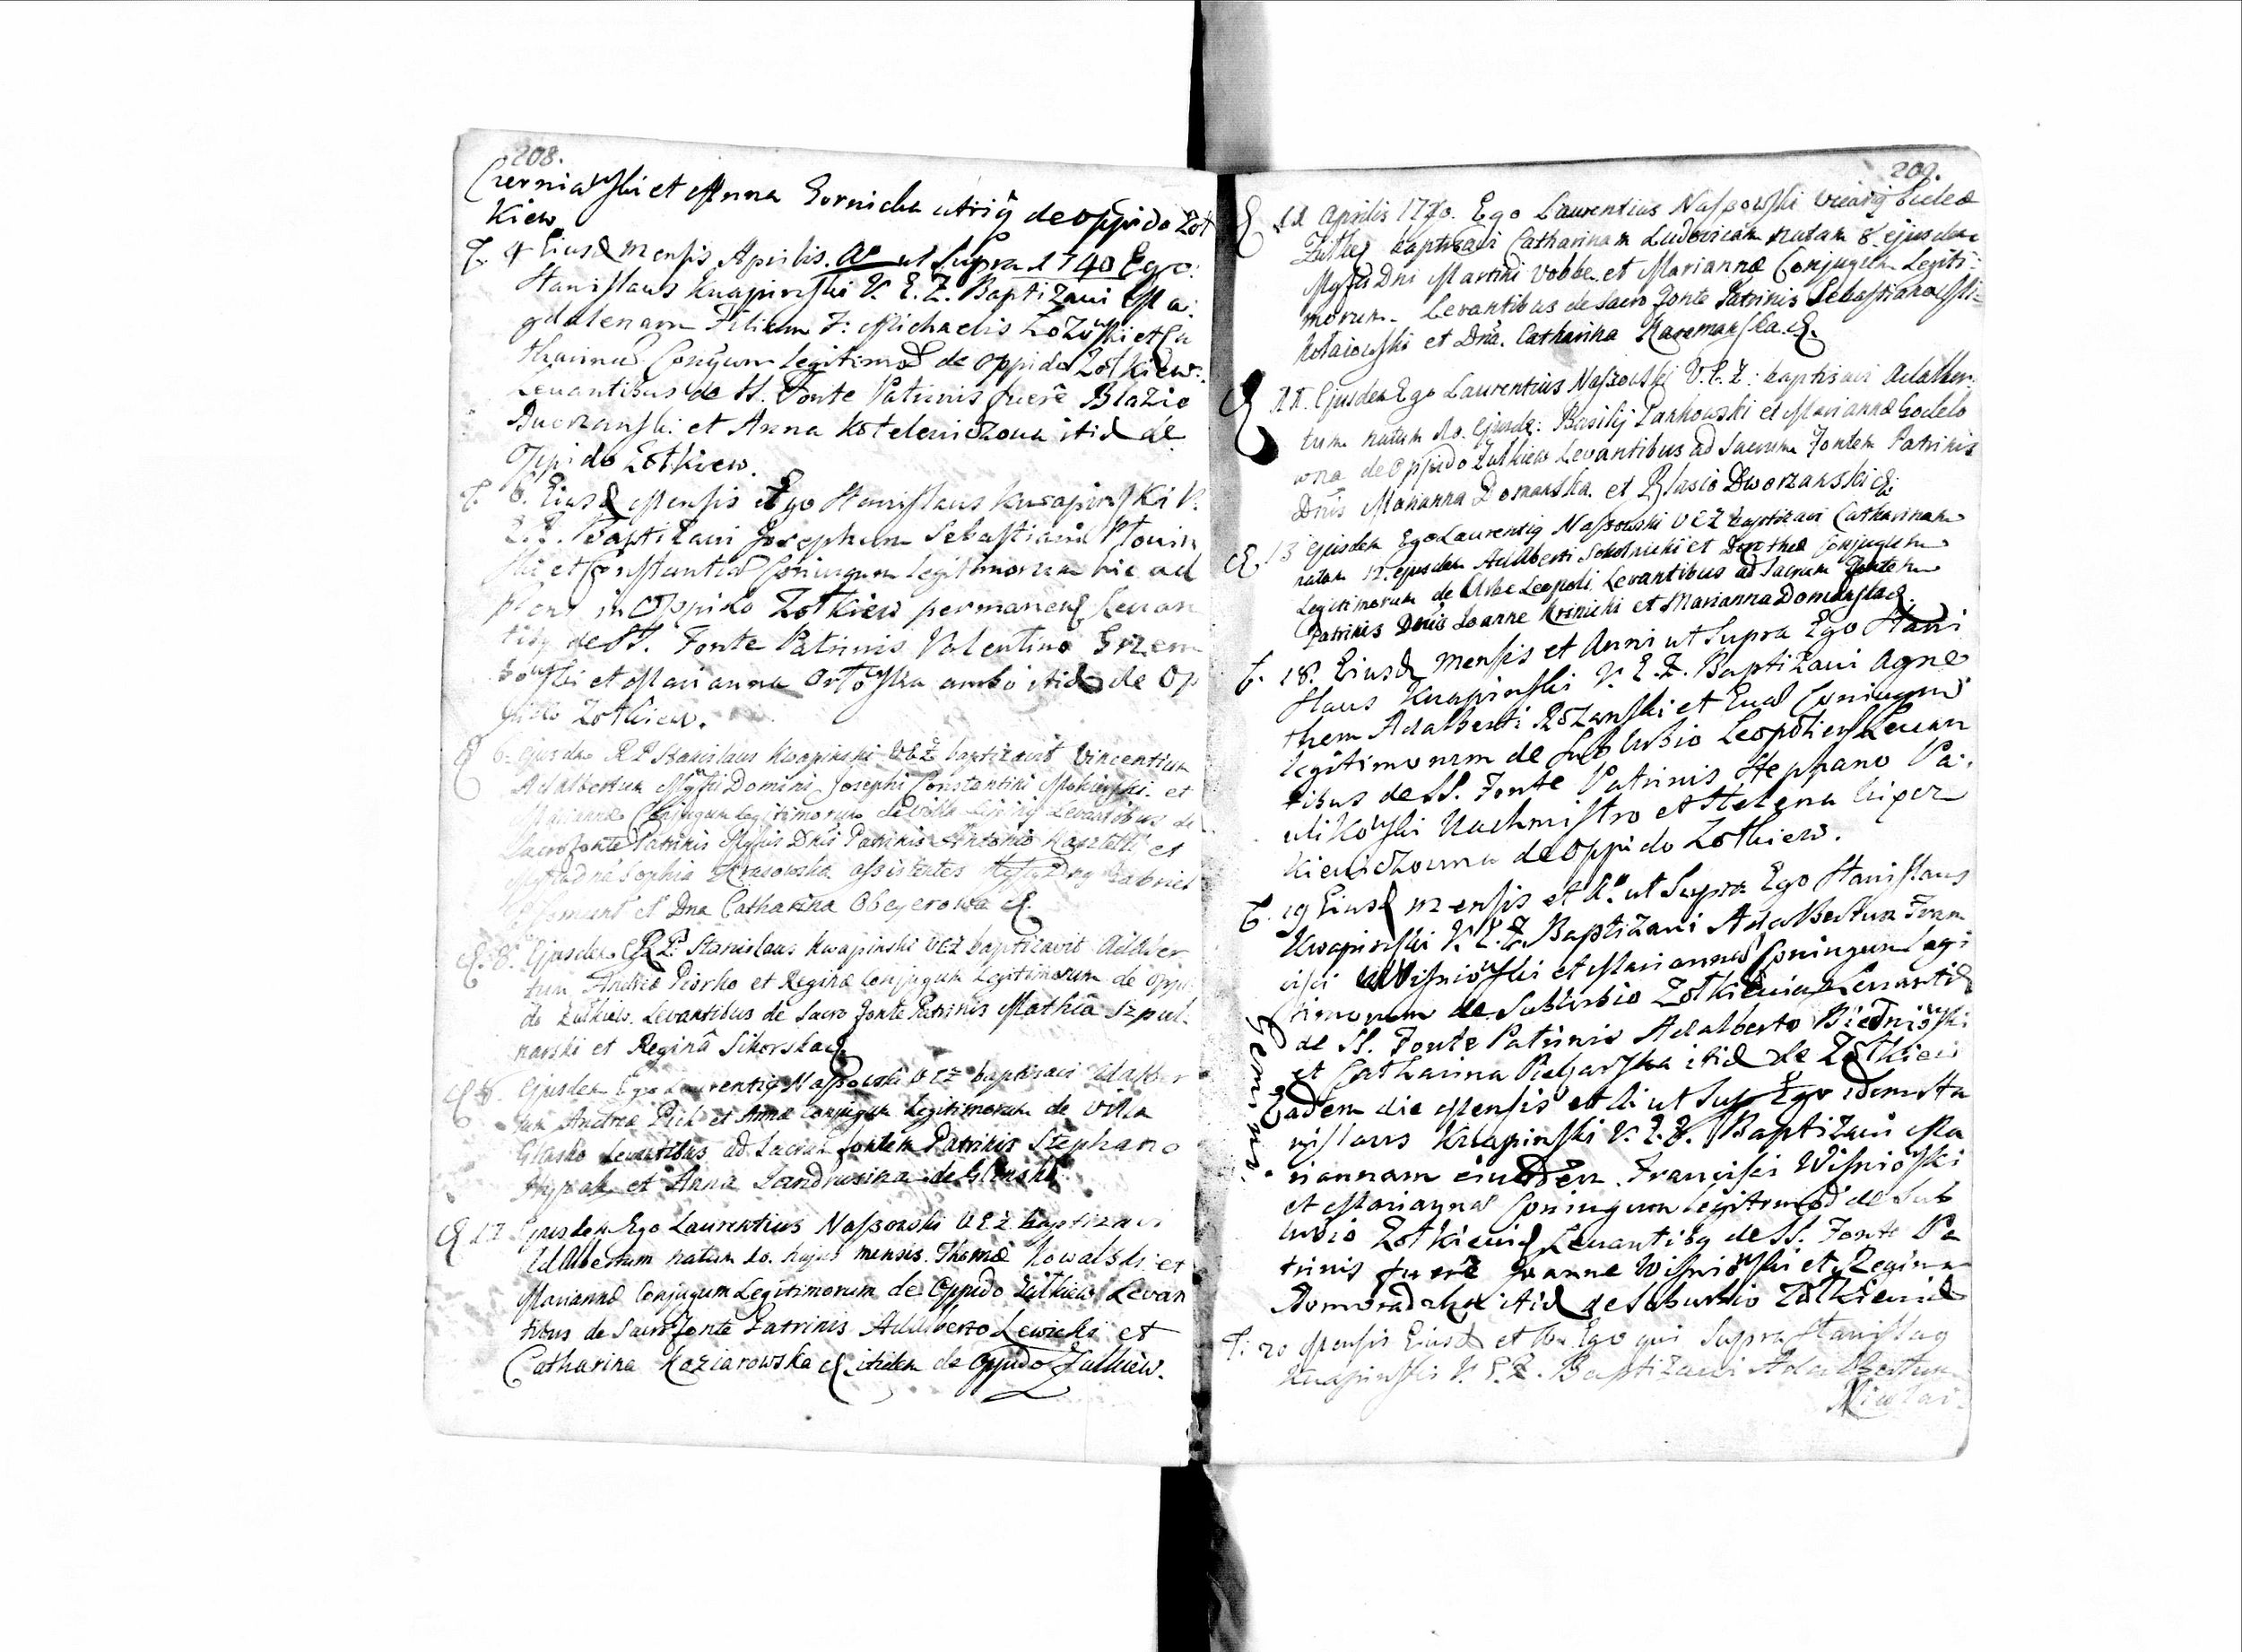 208.
Czerniawski et Anna Gornicka utriq de oppido Zot
kiew
4 Eiusd Mensis Aprilis. Ao ut Supra 1740 Ego
Stanislaus Kwapinski V. E. Z. Baptizaui Ma
gdalenam Filiam F: Michaelis et Ca
tharinæ Coniugum legitimo de oppido Zotkiew.
Leuantibus de SS. Fonte Patrinis fuere Blazio
Dworzanski et Anna Koteleniczowa itid de
Oppido Zotkiew.
6. Eiusd Mensis Ego Stanislaus Kwapinski V.
E. Z. Baptizaui Josephum Sebastiani
ski et Constantiæ Coniugum legitimorum hic ad
in Oppido Zotkiew permanen Leuan
tibq de SS. Fonte Patrinis Valentino
et Marianna ambo itid de Op
pido Zotkiew.
6. ejusdem R P Stanislaus Kwapinski VEZ baptizavit Vincentium
Adalbertum Domini Josephi Constantini et
Mariannæ Conjugum legitimorum de villa Levantibus de
Sacro fonte Patrinis Dnis Patrinis Antonio et
Sophia Krasowska assistentes Gabriel
et Dna Catharina
8. Ejusdem R P. Stanislaus Kwapinski VEZ baptizavit Adalber
tum Andreæ Piorko et Reginæ Conjugum Legitimorum de Oppi
do Zulkiew. Levantibus de Sacro fonte Patrinis Mathia Szpul
narski et Regina Sikorska
8. Ejusdem Ego Laurentiq Naszowski VEZ baptisavi Adalber
um Andreæ Pich et Annæ Conjugum Legitimorum de Villa
Glasko Levantibus ad Sacrum fontem Patrinis Stephano
et Anna de
17 Ejusdem Ego Laurentius Naszowski VEZ baptizavi
Adalbertum natum 10. hujus mensis Thomæ Kowalski et
Mariannæ Conjugum Legitimorum de Oppido Zulkiew Levan
tibus de Sacro fonte Patrinis Adalberto Lewicki et
Catharina Koziarowska itidem de Oppido Zulkiew.
209.
11 Aprilis 1740. Ego Laurentius Naszowski vicariq Eccleæ
Zulkq baptisavi Catharinam Ludovicam natam 8 ejusdem
Dni Martini Vobbe et Mariannæ Conjugum Legiti
morum. Levantibus de Sacro fonte Patrinis Sebastiano Mi
kolaiowski et Dna. Catharina Karamanska
11. Ejusdem Ego Laurentius Naszowski V.E.Z. baptisavi Adalber
tum natum 10. Ejusde: Basilij Pankowski et Mariannæ Godelo
wna de Oppido Zulkiew Levantibus ad Sacrum Fontem Patrinis
Dnis Marianna Domanska et Blasio Dworzanski
13 ejusdem Ego Laurentiq Naszowski VEZ baptizavi Catharinam
natam 12. ejusdem Adalberti Sokolnicki et Dorotheæ Conjugum
Legitimorum de Urbe Leopoli Levantibus ad Sacrum fontem
Patrinis Dnis Joanne Krinicki et Marianna Domanska
18. Eiusd Mensis et Anni ut Supra Ego Stani
slaus Kwapinski V. E. Z. Baptizaui Agne
them Adalberti Rozanski et Euæ Coniugum
legitimorum de Suburbio Leopolien Leuan
tibus de SS. Fonte Patrinis Stephano Pa
ulikowski Kuchmistro et Helena
kieuiczowna de oppido Zotkiew.
19 Eiusd Mensis et Ao ut Supra Ego Stanislaus
Kwapinski V. E. Z. Baptizaui Adalbertum Fran
cisci Wisniowski et Mariannæ Coniugum legi
timorum de Suburbio Zotkieuien Leuantib
de SS. Fonte Patrinis Adalberto Biedniowski
et Catharina Piekarska itid de Zotkiew
Gemini.
Eadem die Mensis et Ai ut Sup Ego idem Sta
nislaus Kwapinski V. E. Z. Baptizaui Ma
riannam eiusdem Francisci Wisniowski
et Mariannæ Coniugum legitimo de Sub
urbio Zotkieuien Leuantibq de SS. Fonte Pa
trinis fuere Joanne Wisniowski et Regina
Domoradzka itid de Suburbio Zotkieuien
20 Mensis Eiusd et Ego qui Supra Stanislaq
Kwapinski V. E. Z. Baptizaui Adalbertum
Nicolai